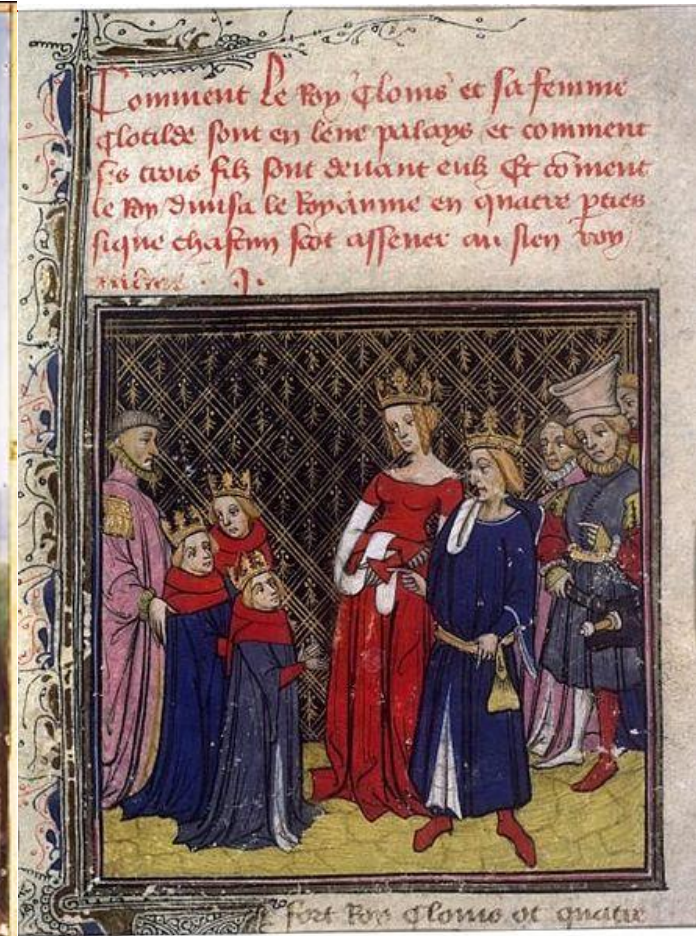 Comment le Roy Clouis et sa femme
Clotilde sont en leur palays et comment
ses trois filz sont deuant eulz Et coment
le Roy diuisa le Royaume en quatre pties
sique chascun soot assener au sien Roy
fort Roy Clouis ot quatre